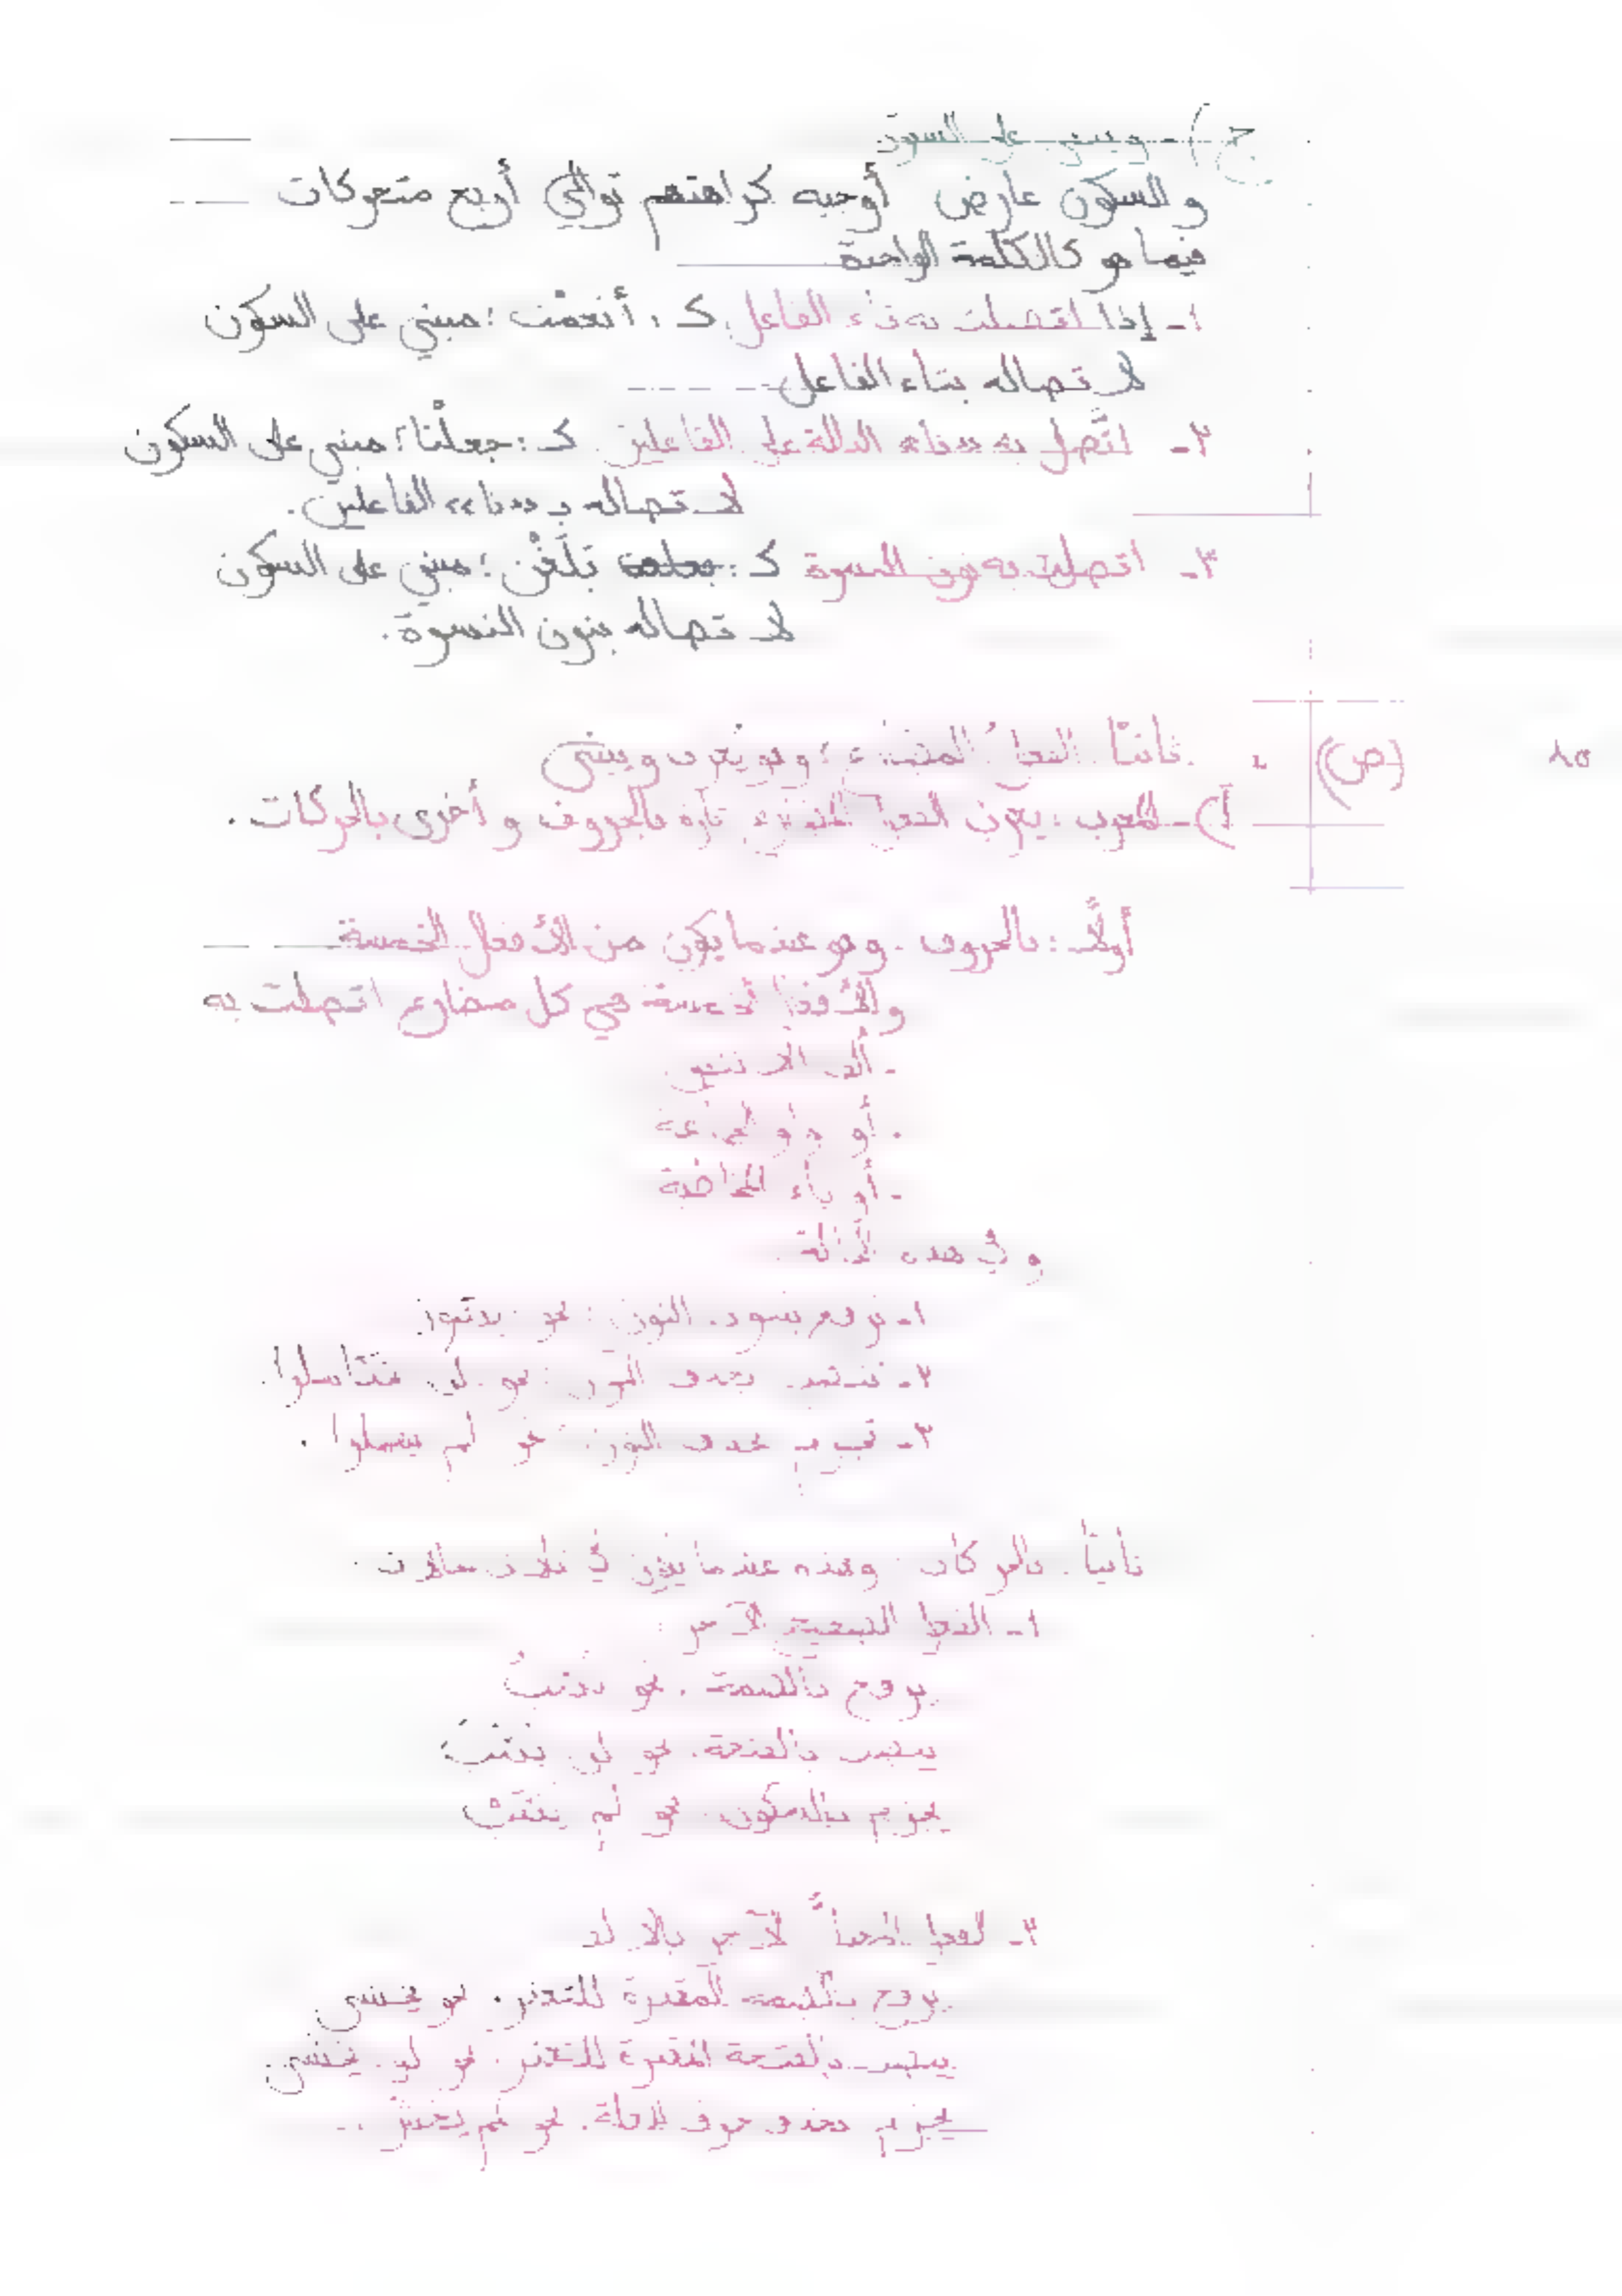 ج) - ويبنى على السكون
والسكون عارض أوجبه كراهتهم توالي أربع متحركات
فيما هو كالكلمة الواحدة
١- إذا اتصلت به تاء الفاعل كـ: أنعمْت؛ مبني على السكون
لاتصاله بتاء الفاعل
٢- اتَّصل به «نا» الدالة على الفاعلين كـ: جعلْنا؛ مبني على السكون
لاتصاله بـ «نا» الفاعلين.
٣- اتصلت به نون النسوة كـ: بَلَغْن؛ مبني على السكون
لاتصاله بنون النسوة.
(ص) ثانيًا. الفعلُ المضارع؛ وهو يُعرب ويبنى
أ) - المعرب: يعرب الفعل المضارع تارة بالحروف وأخرى بالحركات.
أولًا: بالحروف. وهو عندما يكون من الأفعال الخمسة
والأفعال الخمسة هي كل مضارع اتصلت به
- ألف الاثنين
- أو واو الجماعة
- أو ياء المخاطبة
وفي هذه الحالة
١- يرفع بثبوت النون: نحو
٢- ينصب بحذف النون: نحو لن
٣- يجزم بحذف النون: نحو لم
ثانيًا. بالحركات. وهذه عندما يكون في ثلاث حالات.
١- الفعل الصحيح الآخر
يرفع بالضمة. نحو يكتبُ
ينصب بالفتحة. نحو لن يكتبَ
يجزم بالسكون. نحو لم يكتبْ
٢- الفعل المعتل الآخر بالألف
يرفع بالضمة المقدرة للتعذر. نحو يخشى
ينصب بالفتحة المقدرة للتعذر. نحو لن يخشى
يجزم بحذف حرف العلة. نحو لم يخش